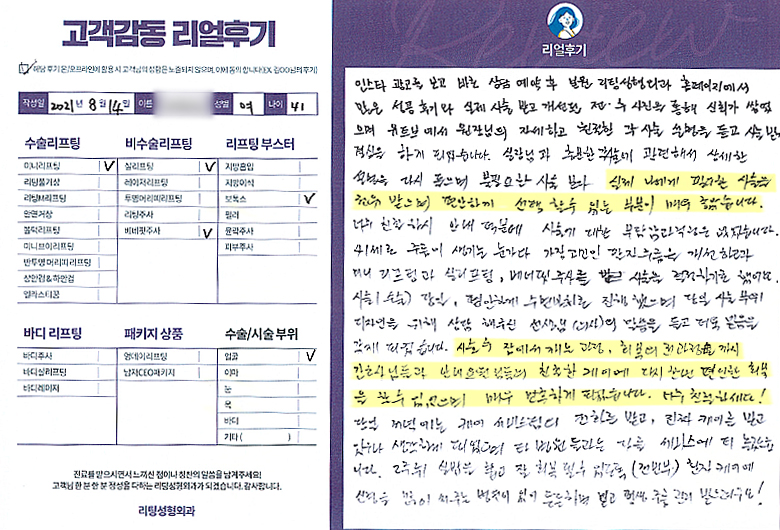 고객감동 리얼후기
해당 후기 온/오프라인에 활용 시 고객님의 성함은 노출되지 않으며, 이에 동의 합니다(EX. 김OO님의 후기)
작성일 2021년 8월 14일 이름 성별 여 나이 41
수술리프팅
미니리프팅 ✓
리팅풀가상
리팅M리프팅
안면거상
볼턱리프팅
미니브이리프팅
반투명 머리띠 리프팅
상안검&하안검
엘라스티꿈
비수술리프팅
실리프팅 ✓
레이저리프팅
투명머리띠리프팅
리팅주사
비비젯주사 ✓
리프팅 부스터
지방흡입
지방이식
보톡스 ✓
필러
윤곽주사
피부주사
바디 리프팅
바디주사
바디실리프팅
바디레이저
패키지 상품
영데이리프팅
남자CEO패키지
수술/시술 부위
얼굴 ✓
이마
눈
목
바디
기타 ( )
진료를 받으시면서 느끼신 점이나 칭찬의 말씀을 남겨주세요!
고객님 한 분 한 분 정성을 다하는 리팅성형외과가 되겠습니다. 감사합니다.
리팅성형외과
Review
리얼후기
인스타 광고를 보고 바로 상담 예약 후 방문 리팅성형외과 홈페이지에서
많은 성공 후기와 실제 시술 받고 개선된 전·후 사진을 통해 신뢰가 쌓였
으며 유튜브에서 원장님의 자세하고 친절한 각 시술 설명을 듣고 시술
결심을 하게 되었습니다. 실장님과 충분한 상담에 관련해서 상세한
설명을 다시 들으며 불필요한 시술 보다 실제 나에게 필요한 시술을
받으며 편안하게 선택 할 수 있는 부분이 매우 좋았습니다.
너무 친절하신 안내 덕분에 시술에 대한 부담감과 걱정은 없었습니다.
41세로 주름이 생기는 눈가와 가장 고민인 팔자주름을 개선하고자
미니 리프팅과 실리프팅, 주사를 받고 시술을 결정하기로 했어요.
시술(수술) 당일, 편안하게 수면마취로 진행 했으며 당일 시술 부위
디자인을 위해 상담 해주신 선생님 말씀을 듣고 더욱 믿음을
갖게 되었습니다. 시술 후 잠에서 깨는 과정, 회복의 과정까지
간호사님들과 안내요원님들의 친절한 케어에 다시 한번 편안한 회복
을 할 수 있었으며 매우 만족하게 되었습니다. 너무 친절하세요!
당일 저녁에는 케어 전화를 받고, 진짜 케어를 받고
있구나 생각하게 되었으며 타 병원들과는 다른 서비스에 더 놀랐습
니다.